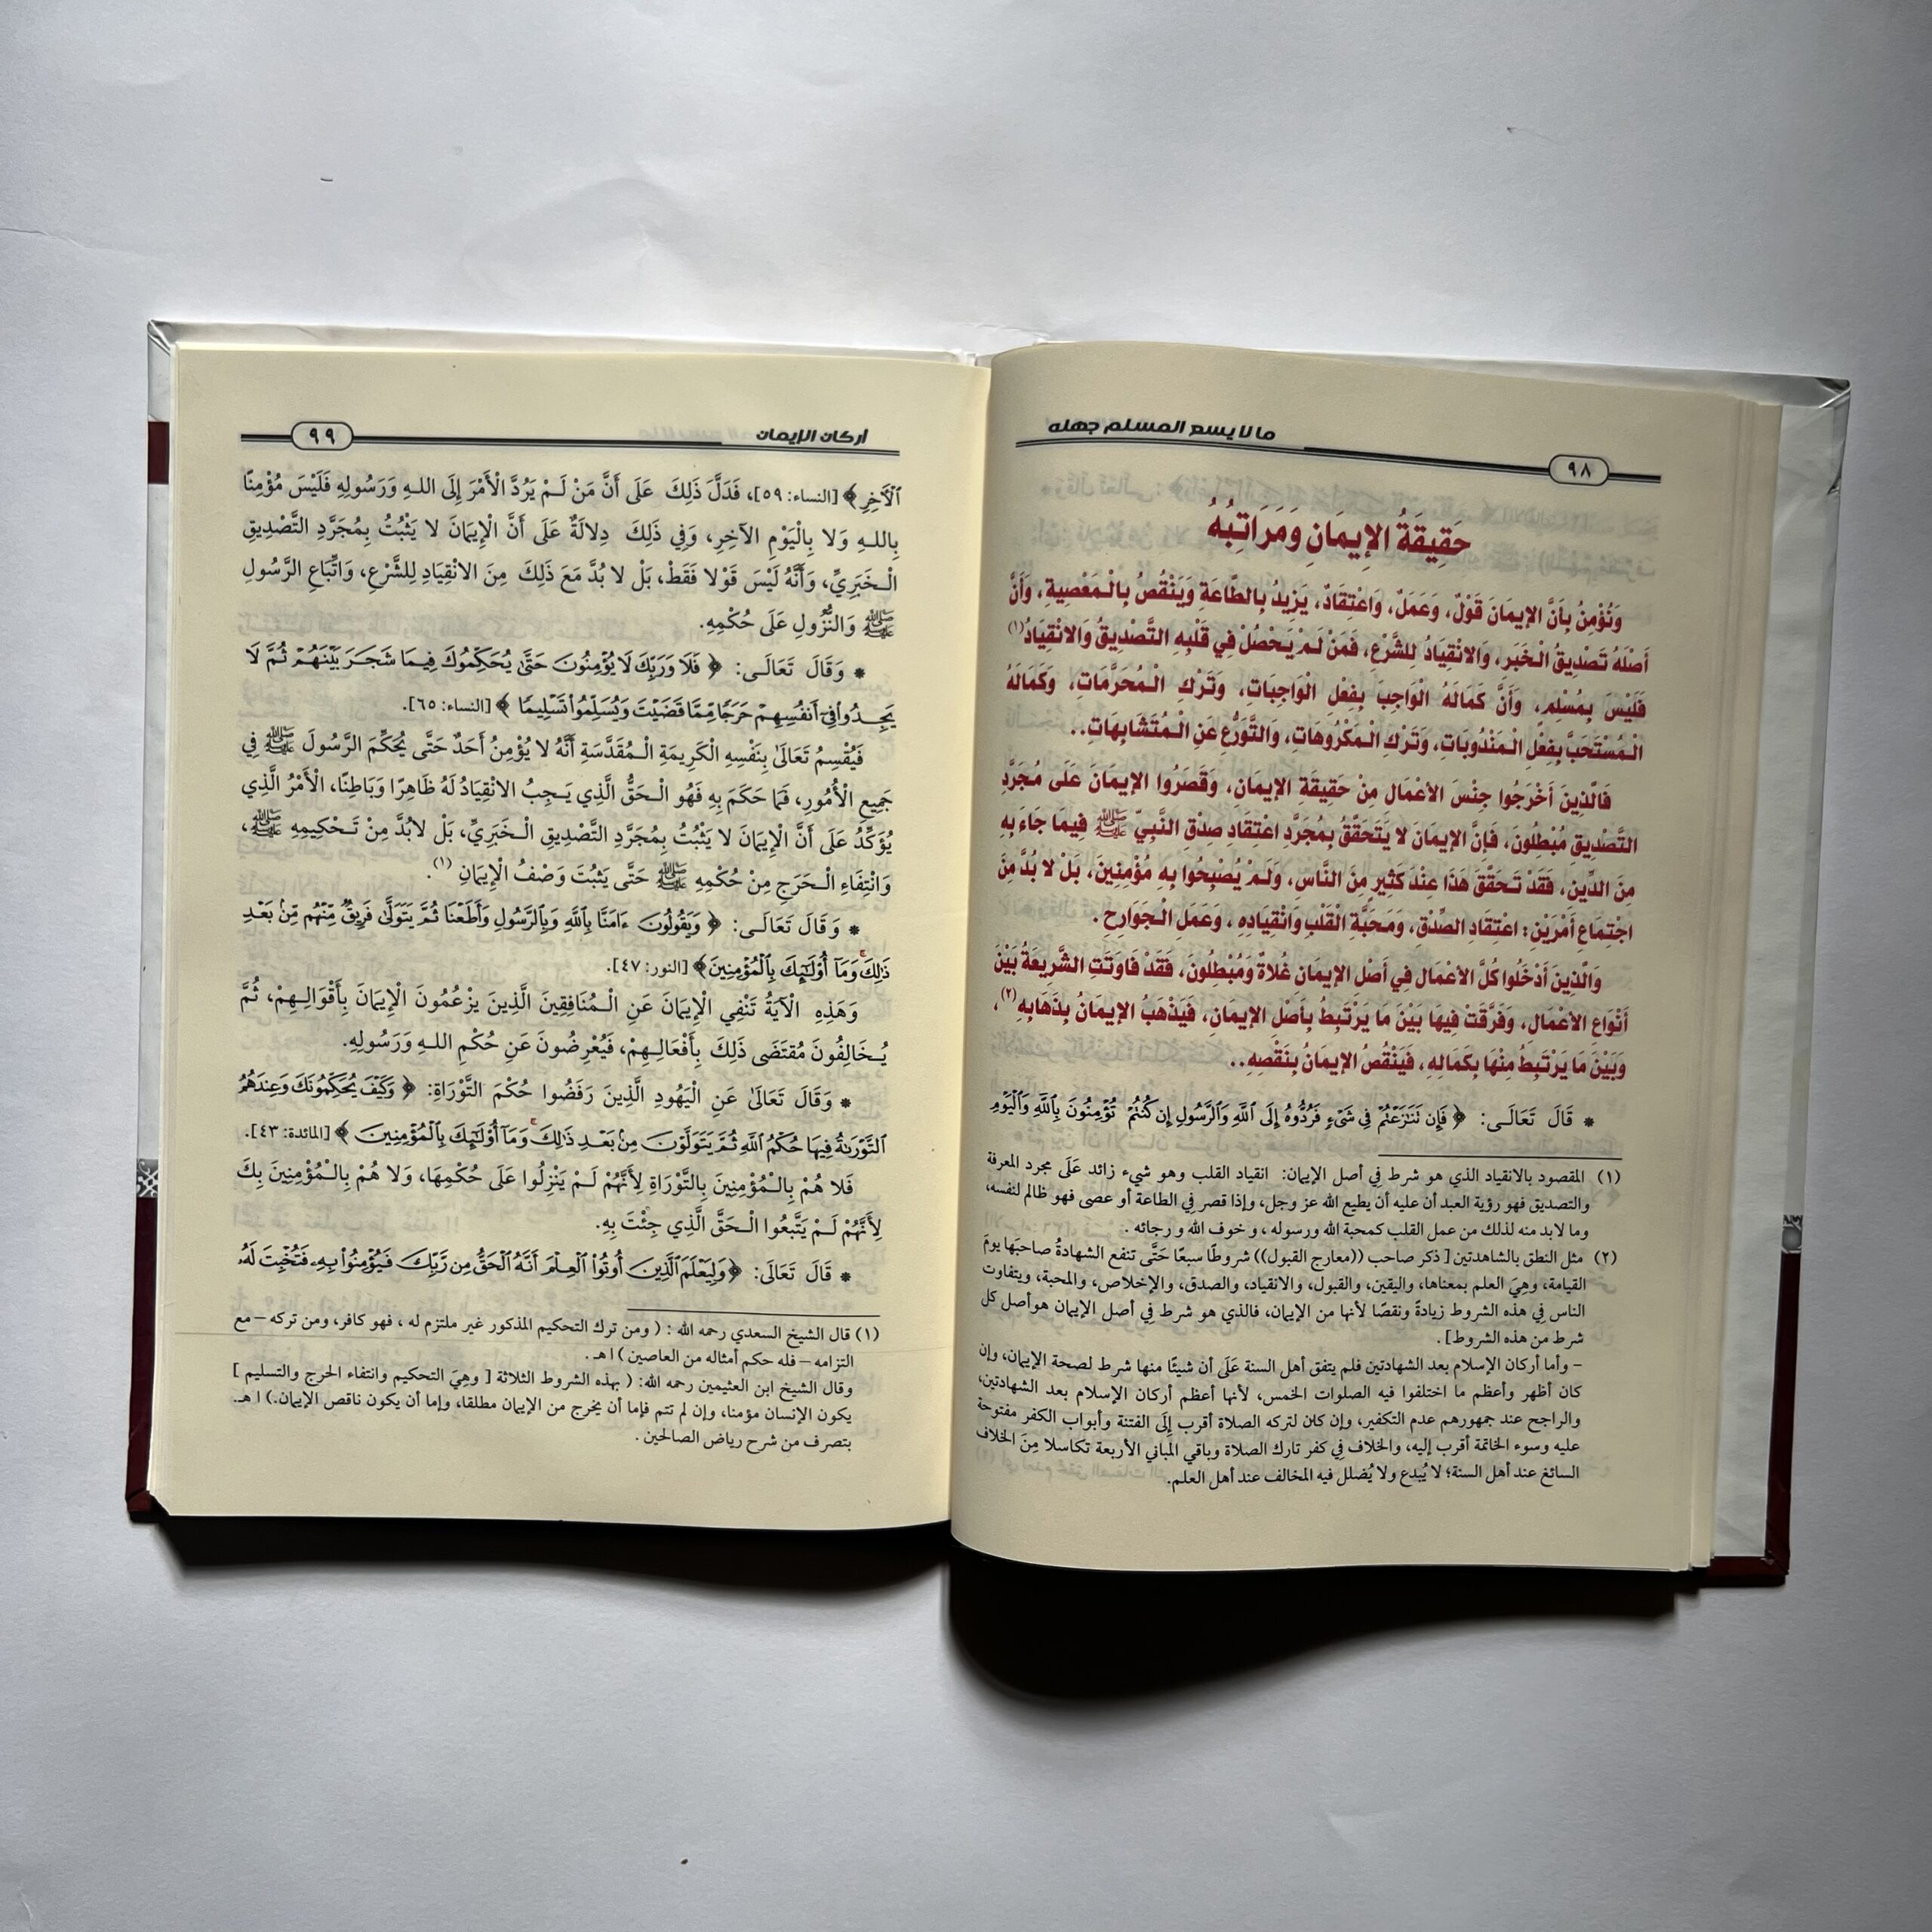 ما لا يسع المسلم جهله
٩٨
حَقِيقَةُ الإِيمَانِ وَمَرَاتِبُهُ
وَنُؤْمِنُ بِأَنَّ الإِيمَانَ قَوْلٌ، وَعَمَلٌ، وَاعْتِقَادٌ، يَزِيدُ بِالطَّاعَةِ وَيَنْقُصُ بِالْمَعْصِيةِ، وَأَنَّ
أَصْلَهُ تَصْدِيقُ الْخَبَرِ، وَالانْقِيَادُ لِلشَّرْعِ، فَمَنْ لَمْ يَحْصُلْ فِي قَلْبِهِ التَّصْدِيقُ وَالانْقِيَادُ(١)
فَلَيْسَ بِمُسْلِمٍ، وَأَنَّ كَمَالَهُ الْوَاجِبَ بِفِعْلِ الْوَاجِبَاتِ، وَتَرْكِ الْمُحَرَّمَاتِ، وَكَمَالَهُ
الْمُسْتَحَبَّ بِفِعْلِ الْمَنْدُوبَاتِ، وَتَرْكِ الْمَكْرُوهَاتِ، وَالتَّوَرُّعِ عَنِ الْمُتَشَابِهَاتِ..
فَالَّذِينَ أَخْرَجُوا جِنْسَ الأَعْمَالِ مِنْ حَقِيقَةِ الإِيمَانِ، وَقَصَرُوا الإِيمَانَ عَلَى مُجَرَّدِ
التَّصْدِيقِ مُبْطِلُونَ، فَإِنَّ الإِيمَانَ لا يَتَحَقَّقُ بِمُجَرَّدِ اعْتِقَادِ صِدْقِ النَّبِيِّ ﷺ فِيمَا جَاءَ بِهِ
مِنَ الدِّينِ، فَقَدْ تَحَقَّقَ هَذَا عِنْدَ كَثِيرٍ مِنَ النَّاسِ، وَلَمْ يُصْبِحُوا بِهِ مُؤْمِنِينَ، بَلْ لا بُدَّ مِنَ
اجْتِمَاعِ أَمْرَيْنِ: اعْتِقَادِ الصِّدْقِ، وَمَحَبَّةِ الْقَلْبِ وَانْقِيَادِهِ ، وَعَمَلِ الْجَوَارِحِ .
وَالَّذِينَ أَدْخَلُوا كُلَّ الأَعْمَالِ فِي أَصْلِ الإِيمَانِ غُلاةٌ وَمُبْطِلُونَ، فَقَدْ فَاوَتَتِ الشَّرِيعَةُ بَيْنَ
أَنْوَاعِ الأَعْمَالِ، وَفَرَّقَتْ فِيهَا بَيْنَ مَا يَرْتَبِطُ بِأَصْلِ الإِيمَانِ، فَيَذْهَبُ الإِيمَانُ بِذَهَابِهِ(٢)،
وَبَيْنَ مَا يَرْتَبِطُ مِنْهَا بِكَمَالِهِ ، فَيَنْقُصُ الإِيمَانُ بِنَقْصِهِ..
* قَالَ تَعَالَـى: ﴿ فَإِن تَنَـٰزَعْتُمْ فِي شَىْءٍ فَرُدُّوهُ إِلَى ٱللَّهِ وَٱلرَّسُولِ إِن كُنتُمْ تُؤْمِنُونَ بِٱللَّهِ وَٱلْيَوْمِ
(١) المقصود بالانقياد الذي هو شرط في أصل الإيمان: انقياد القلب وهو شيء زائد عَلَى مجرد المعرفة
والتصديق فهو رؤية العبد أن عليه أن يطيع الله عز وجل، وإذا قصر في الطاعة أو عصى فهو ظالم لنفسه،
وما لابد منه لذلك من عمل القلب كمحبة الله ورسوله ، وخوف الله ورجائه .
(٢) مثل النطق بالشاهدتين [ ذكر صاحب ((معارج القبول)) شروطًا سبعًا حَتَّى تنفع الشهادةُ صاحبَها يومَ
القيامة، وهِيَ العلم بمعناها، واليقين، والقبول، والانقياد، والصدق، والإخلاص، والمحبة، ويتفاوت
الناس في هذه الشروط زيادةً ونقصًا لأنها من الإيمان، فالذي هو شرط في أصل الإيمان هو أصل كل
شرط من هذه الشروط] .
- وأما أركان الإسلام بعد الشهادتين فلم يتفق أهل السنة عَلَى أن شيئًا منها شرط لصحة الإيمان، وإن
كان أظهر وأعظم ما اختلفوا فيه الصلوات الخمس، لأنها أعظم أركان الإسلام بعد الشهادتين،
والراجح عند جمهورهم عدم التكفير، وإن كان لتركه الصلاة أقرب إلَى الفتنة وأبواب الكفر مفتوحة
عليه وسوء الخاتمة أقرب إليه، والخلاف في كفر تارك الصلاة وباقي المباني الأربعة تكاسلا مِنَ الخلاف
السائغ عند أهل السنة؛ لا يُبدع ولا يُضلل فيه المخالف عند أهل العلم.
أركان الإيمان
٩٩
ٱلْـَٔاخِرِ ﴾ [النساء: ٥٩]، فَدَلَّ ذَلِكَ عَلَى أَنَّ مَنْ لَـمْ يَرُدَّ الْأَمْرَ إِلَى اللـهِ وَرَسُولِهِ فَلَيْسَ مُؤْمِنًا
بِاللـهِ وَلا بِالْيَوْمِ الآخِرِ، وَفِي ذَلِكَ دِلالَةٌ عَلَى أَنَّ الْإِيمَانَ لا يَثْبُتُ بِمُجَرَّدِ التَّصْدِيقِ
الْـخَبَرِيِّ، وَأَنَّهُ لَيْسَ قَوْلا فَقَطْ، بَلْ لا بُدَّ مَعَ ذَلِكَ مِنَ الانْقِيَادِ لِلشَّرْعِ، وَاتِّبَاعِ الرَّسُولِ
ﷺ وَالنُّزُولِ عَلَى حُكْمِهِ.
* وَقَالَ تَعَالَـى: ﴿ فَلَا وَرَبِّكَ لَا يُؤْمِنُونَ حَتَّىٰ يُحَكِّمُوكَ فِيمَا شَجَرَ بَيْنَهُمْ ثُمَّ لَا
يَجِـدُوا۟ فِىٓ أَنفُسِهِمْ حَرَجًا مِّمَّا قَضَيْتَ وَيُسَلِّمُوا۟ تَسْلِيمًا ﴾ [النساء: ٦٥].
فَيُقْسِمُ تَعَالَىٰ بِنَفْسِهِ الْكَرِيمَةِ الْـمُقَدَّسَةِ أَنَّهُ لا يُؤْمِنُ أَحَدٌ حَتَّى يُحَكِّمَ الرَّسُولَ ﷺ فِي
جَمِيعِ الْأُمُورِ، فَمَا حَكَمَ بِهِ فَهُو الْـحَقُّ الَّذِي يَـجِبُ الانْقِيَادُ لَهُ ظَاهِرًا وَبَاطِنًا، الأَمْرُ الَّذِي
يُؤَكِّدُ عَلَى أَنَّ الْإِيمَانَ لا يَثْبُتُ بِمُجَرَّدِ التَّصْدِيقِ الْـخَبَرِيِّ، بَلْ لابُدَّ مِنْ تَـحْكِيمِهِ ﷺ،
وَانْتِفَاءِ الْـحَرَجِ مِنْ حُكْمِهِ ﷺ حَتَّى يَثْبُتَ وَصْفُ الْإِيمَانِ (١).
* وَقَالَ تَعَالَـى: ﴿ وَيَقُولُونَ ءَامَنَّا بِٱللَّهِ وَبِٱلرَّسُولِ وَأَطَعْنَا ثُمَّ يَتَوَلَّىٰ فَرِيقٌ مِّنْهُم مِّنۢ بَعْدِ
ذَٰلِكَ ۚ وَمَآ أُو۟لَـٰٓئِكَ بِٱلْمُؤْمِنِينَ﴾ [النور: ٤٧].
وَهَذِهِ الْآيَةُ تَنْفِي الْإِيمَانَ عَنِ الْـمُنَافِقِينَ الَّذِينَ يَزْعُمُونَ الْإِيمَانَ بِأَقْوَالِـهِمْ، ثُمَّ
يُـخَالِفُونَ مُقتَضَى ذَلِكَ بِأَفْعَالِـهِمْ، فَيُعْرِضُونَ عَنِ حُكْمِ اللـهِ وَرَسُولِهِ.
* وَقَالَ تَعَالَىٰ عَنِ الْيَهُودِ الَّذِينَ رَفَضُوا حُكْمَ التَّوْرَاةِ: ﴿ وَكَيْفَ يُحَكِّمُونَكَ وَعِندَهُمُ
ٱلتَّوْرَىٰةُ فِيهَا حُكْمُ ٱللَّهِ ثُمَّ يَتَوَلَّوْنَ مِنۢ بَعْدِ ذَٰلِكَ ۚ وَمَآ أُو۟لَـٰٓئِكَ بِٱلْمُؤْمِنِينَ ﴾ [المائدة: ٤٣].
فَلا هُمْ بِالْـمُؤْمِنِينَ بِالتَّوْرَاةِ لِأَنَّهُمْ لَـمْ يَنْزِلُوا عَلَى حُكْمِهَا، وَلا هُمْ بِالْـمُؤْمِنِينَ بِكَ
لِأَنَّهُمْ لَـمْ يَتَّبِعُوا الْـحَقَّ الَّذِي جِئْتَ بِهِ.
* قَالَ تَعَالَى: ﴿وَلِيَعْلَمَ ٱلَّذِينَ أُوتُوا۟ ٱلْعِلْمَ أَنَّهُ ٱلْحَقُّ مِن رَّبِّكَ فَيُؤْمِنُوا۟ بِهِۦ فَتُخْبِتَ لَهُۥ
(١) قال الشيخ السعدي رحمه الله : ( ومن ترك التحكيم المذكور غير ملتزم له ، فهو كافر، ومن تركه – مع
التزامه – فله حكم أمثاله من العاصين ) اهـ .
وقال الشيخ ابن العثيمين رحمه الله: ( بهذه الشروط الثلاثة [ وهِيَ التحكيم وانتفاء الحرج والتسليم ]
يكون الإنسان مؤمنا، وإن لم تتم فإما أن يخرج من الإيمان مطلقا، وإما أن يكون ناقص الإيمان.) اهـ.
بتصرف من شرح رياض الصالحين .